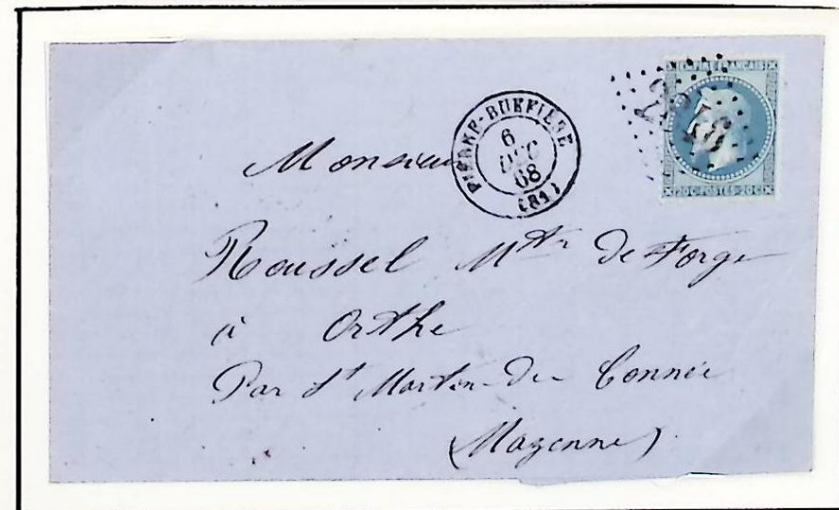 EMPIRE FRANCAIS
20 C POSTES 20 C
PIERRE-BUFFIERE
6
DEC
68
(81)
Monsieur
Roussel Mtr de Forge
à Orthe
Par St Martin-De Connée
(Mayenne)